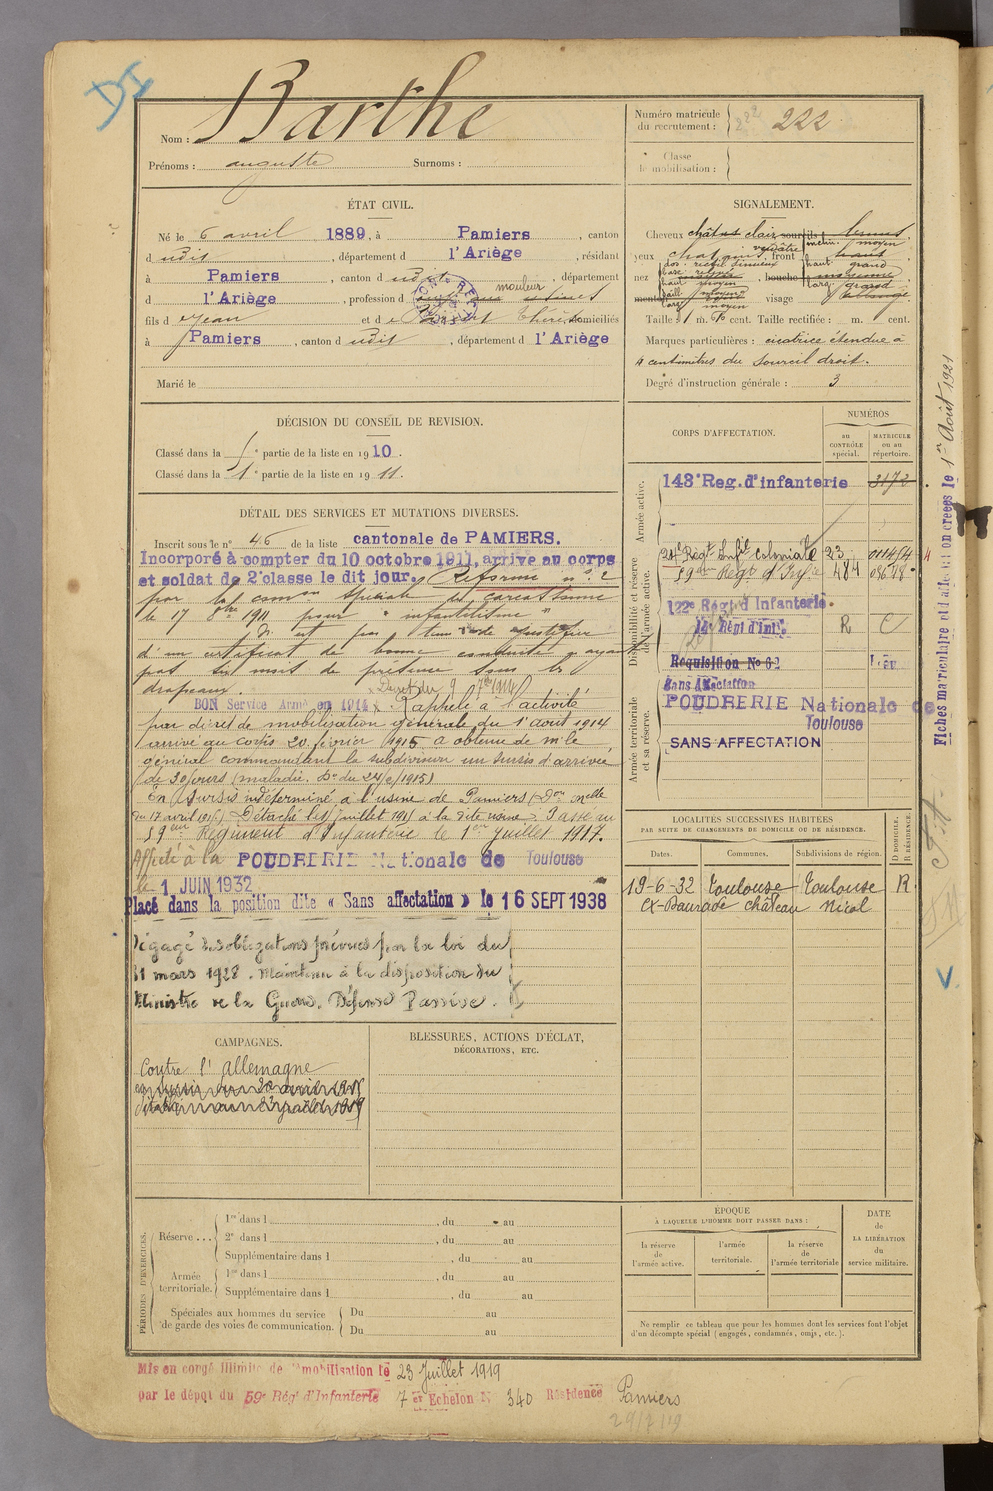 Barthe
Nom :
Prénoms : auguste Surnoms :
Numéro matricule du recrutement : 222
Classe de mobilisation :
ÉTAT CIVIL.
Né le 6 avril 1889, à Pamiers, canton
d udit, département d l'Ariège, résidant
à Pamiers, canton d udit, département
d l'Ariège, profession d mouleur
fils d e Jean et d e domiciliés
à Pamiers, canton d udit, département d l'Ariège
Marié le
SIGNALEMENT.
Cheveux châtus clair sourcils
yeux front
nez bouche
menton visage
Taille : 1 m. cent. Taille rectifiée : m. cent.
Marques particulières : cicatrice étendue à
4 centimètres du sourcil droit.
Degré d'instruction générale : 3
DÉCISION DU CONSEIL DE REVISION.
Classé dans la 5e partie de la liste en 1910.
Classé dans la 1e partie de la liste en 1911.
DÉTAIL DES SERVICES ET MUTATIONS DIVERSES.
Inscrit sous le n° 46 de la liste cantonale de PAMIERS.
Incorporé à compter du 10 octobre 1911, arrive au corps
et soldat de 2e classe le dit jour. Réformé n° 2
par la comon spéciale de Carcassonne
le 17 8bre 1911 pour " infantilisme "
N'est pas tenu de justifier
d'un certificat de bonne conduite n'ayant
pas six mois de présence sous les
drapeaux.
BON Service Armé en 1914 Rappelé à l'activité
par décret de mobilisation générale du 1er aout 1914
arrivé au corps 20 février 1915 a obtenu de Mr le
général commandant la subdivision un sursis d'arrivée
de 30 jours (maladie.
En sursis indéterminé à l'usine de Pamiers
Détaché le 1 juillet 1917 à la dite usine. Passé au
59eme Régiment d'Infanterie le 1er juillet 1917.
Affecté à la POUDRERIE Nationale de Toulouse
le 1 JUIN 1932
Placé dans la position dite « Sans affectation » le 16 SEPT 1938
Dégagé des obligations prévues par la loi du
31 mars 1928. Maintenu à la disposition du
Ministre de la Guerre. Défense Passive.
CORPS D'AFFECTATION.
NUMÉROS
au CONTRÔLE spécial.
MATRICULE ou au répertoire.
Armée active.
143e Reg. d'infanterie 3172
Disponibilité et réserve de l'armée active.
24e Régt Infie Coloniale 23
59eme Régt d'Infie 484
122e Régt d'Infanterie.
14e Régt d'Infie R C
Réquisition No 62
Sans Affectation
Armée territoriale et sa réserve.
POUDRERIE Nationale de
Toulouse
SANS AFFECTATION
LOCALITÉS SUCCESSIVES HABITÉES
PAR SUITE DE CHANGEMENTS DE DOMICILE OU DE RÉSIDENCE.
Dates. Communes. Subdivisions de région. D DOMICILE. R RÉSIDENCE.
19-6-32 Toulouse Toulouse R
château Nicol
Fiches matriculaire
le 1er Août 1921
CAMPAGNES.
Contre l'Allemagne
BLESSURES, ACTIONS D'ÉCLAT,
DÉCORATIONS, ETC.
PÉRIODES D'EXERCICES.
Réserve ...
1re dans l , du au
2e dans l , du au
Supplémentaire dans l , du au
Armée territoriale.
1re dans l , du au
Supplémentaire dans l , du au
Spéciales aux hommes du service
de garde des voies de communication.
Du au
Du au
ÉPOQUE
À LAQUELLE L'HOMME DOIT PASSER DANS :
la réserve de l'armée active.
l'armée territoriale.
la réserve de l'armée territoriale
DATE de LA LIBÉRATION du service militaire.
Ne remplir ce tableau que pour les hommes dont les services font l'objet
d'un décompte spécial (engagés, condamnés, omis, etc.).
Mis en congé illimité de démobilisation le 23 Juillet 1919
par le dépôt du 59e Régt d'Infanterie 7e Echelon N 340 Résidence Pamiers
29/7/19